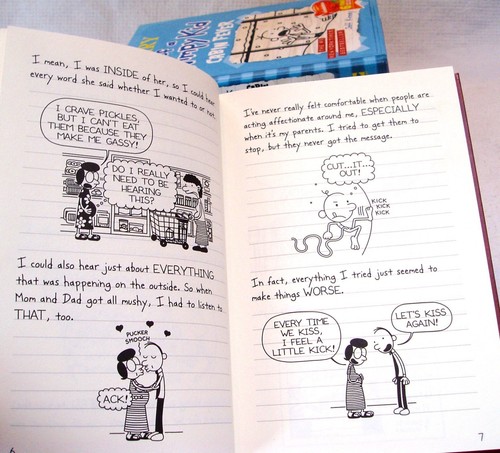 Wimpy Kid
CABIN FEVER
I mean, I was INSIDE of her, so I could hear
every word she said whether I wanted to or not.
I CRAVE PICKLES,
BUT I CAN'T EAT
THEM BECAUSE THEY
MAKE ME GASSY!
DO I REALLY
NEED TO BE
HEARING
THIS?
I could also hear just about EVERYTHING
that was happening on the outside. So when
Mom and Dad got all mushy, I had to listen to
THAT, too.
PUCKER
SMOOCH
ACK!
6
I've never really felt comfortable when people are
acting affectionate around me, ESPECIALLY
when it's my parents. I tried to get them to
stop, but they never got the message.
CUT...IT...
OUT!
KICK
KICK
KICK
In fact, everything I tried just seemed to
make things WORSE.
EVERY TIME
WE KISS,
I FEEL A
LITTLE KICK!
LET'S KISS
AGAIN!
7